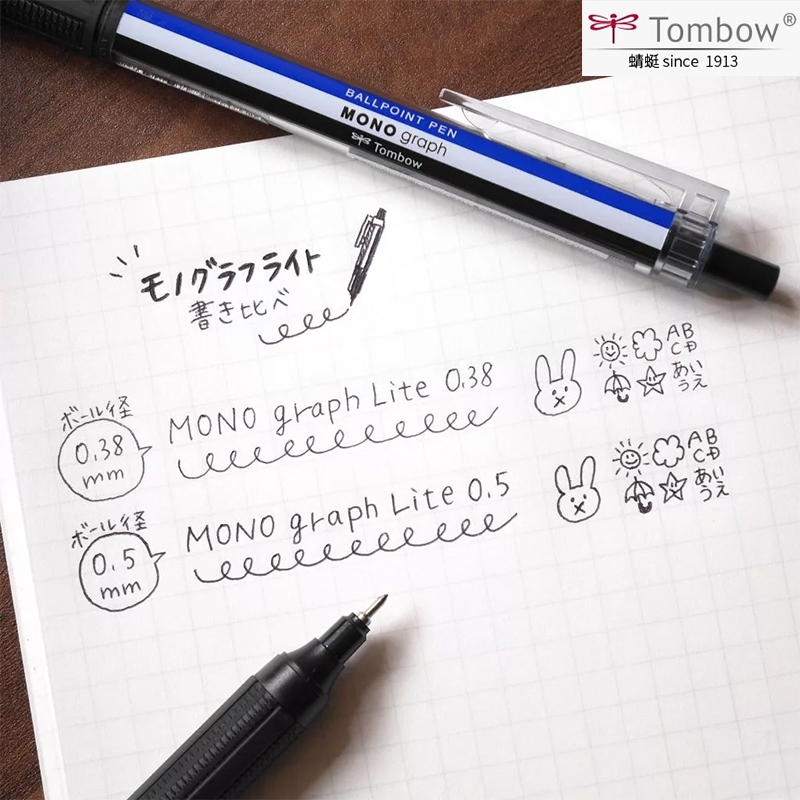 Tombow®
蜻蜓 since 1913
BALLPOINT PEN
MONO graph
Tombow
モノグラフライト
書き比べ
ボール径
0.38
mm
MONO graph Lite 0.38
AB
CD
あい
うえ
ボール径
0.5
mm
MONO graph Lite 0.5
AB
CD
あい
うえ